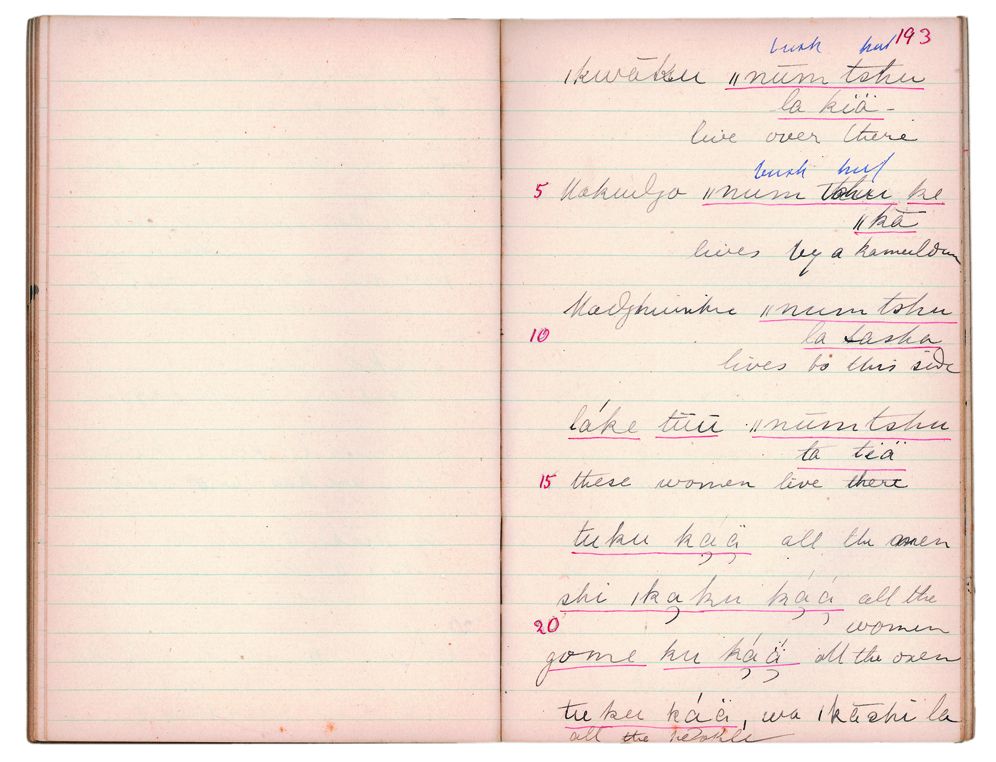 193
bush hut
ǀkwãku ǁnūm tshu
la kïä -
live over there
bush hut
5 Nakudgo ǁnum tshu ke
ǁkā
lives by a kameeldorn
ǁnum tshu
10 la tasha
lives to this side
láke tūū ǁnūm tshu
ta tïä
15 these women live there
tuku ka̦á̦ä all the men
shi ǀka̦ku ká̦á̦ all the
20 women
gome ku ká̦ä̦ all the oxen
tuku káä, wa ǀkãshi la
all the people